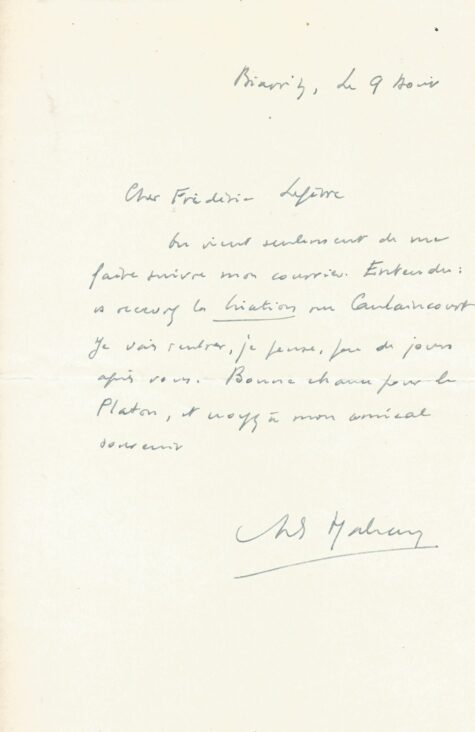 Biarritz, le 9 Août
Cher Frédéric Lefèvre
On vient seulement de me
faire suivre mon courrier. Entendu :
recevez les rue Caulaincourt
Je vais rentrer, je pense, peu de jours
après vous. Bonne chance pour le
Platon, et croyez à mon amical
souvenir
André Malraux